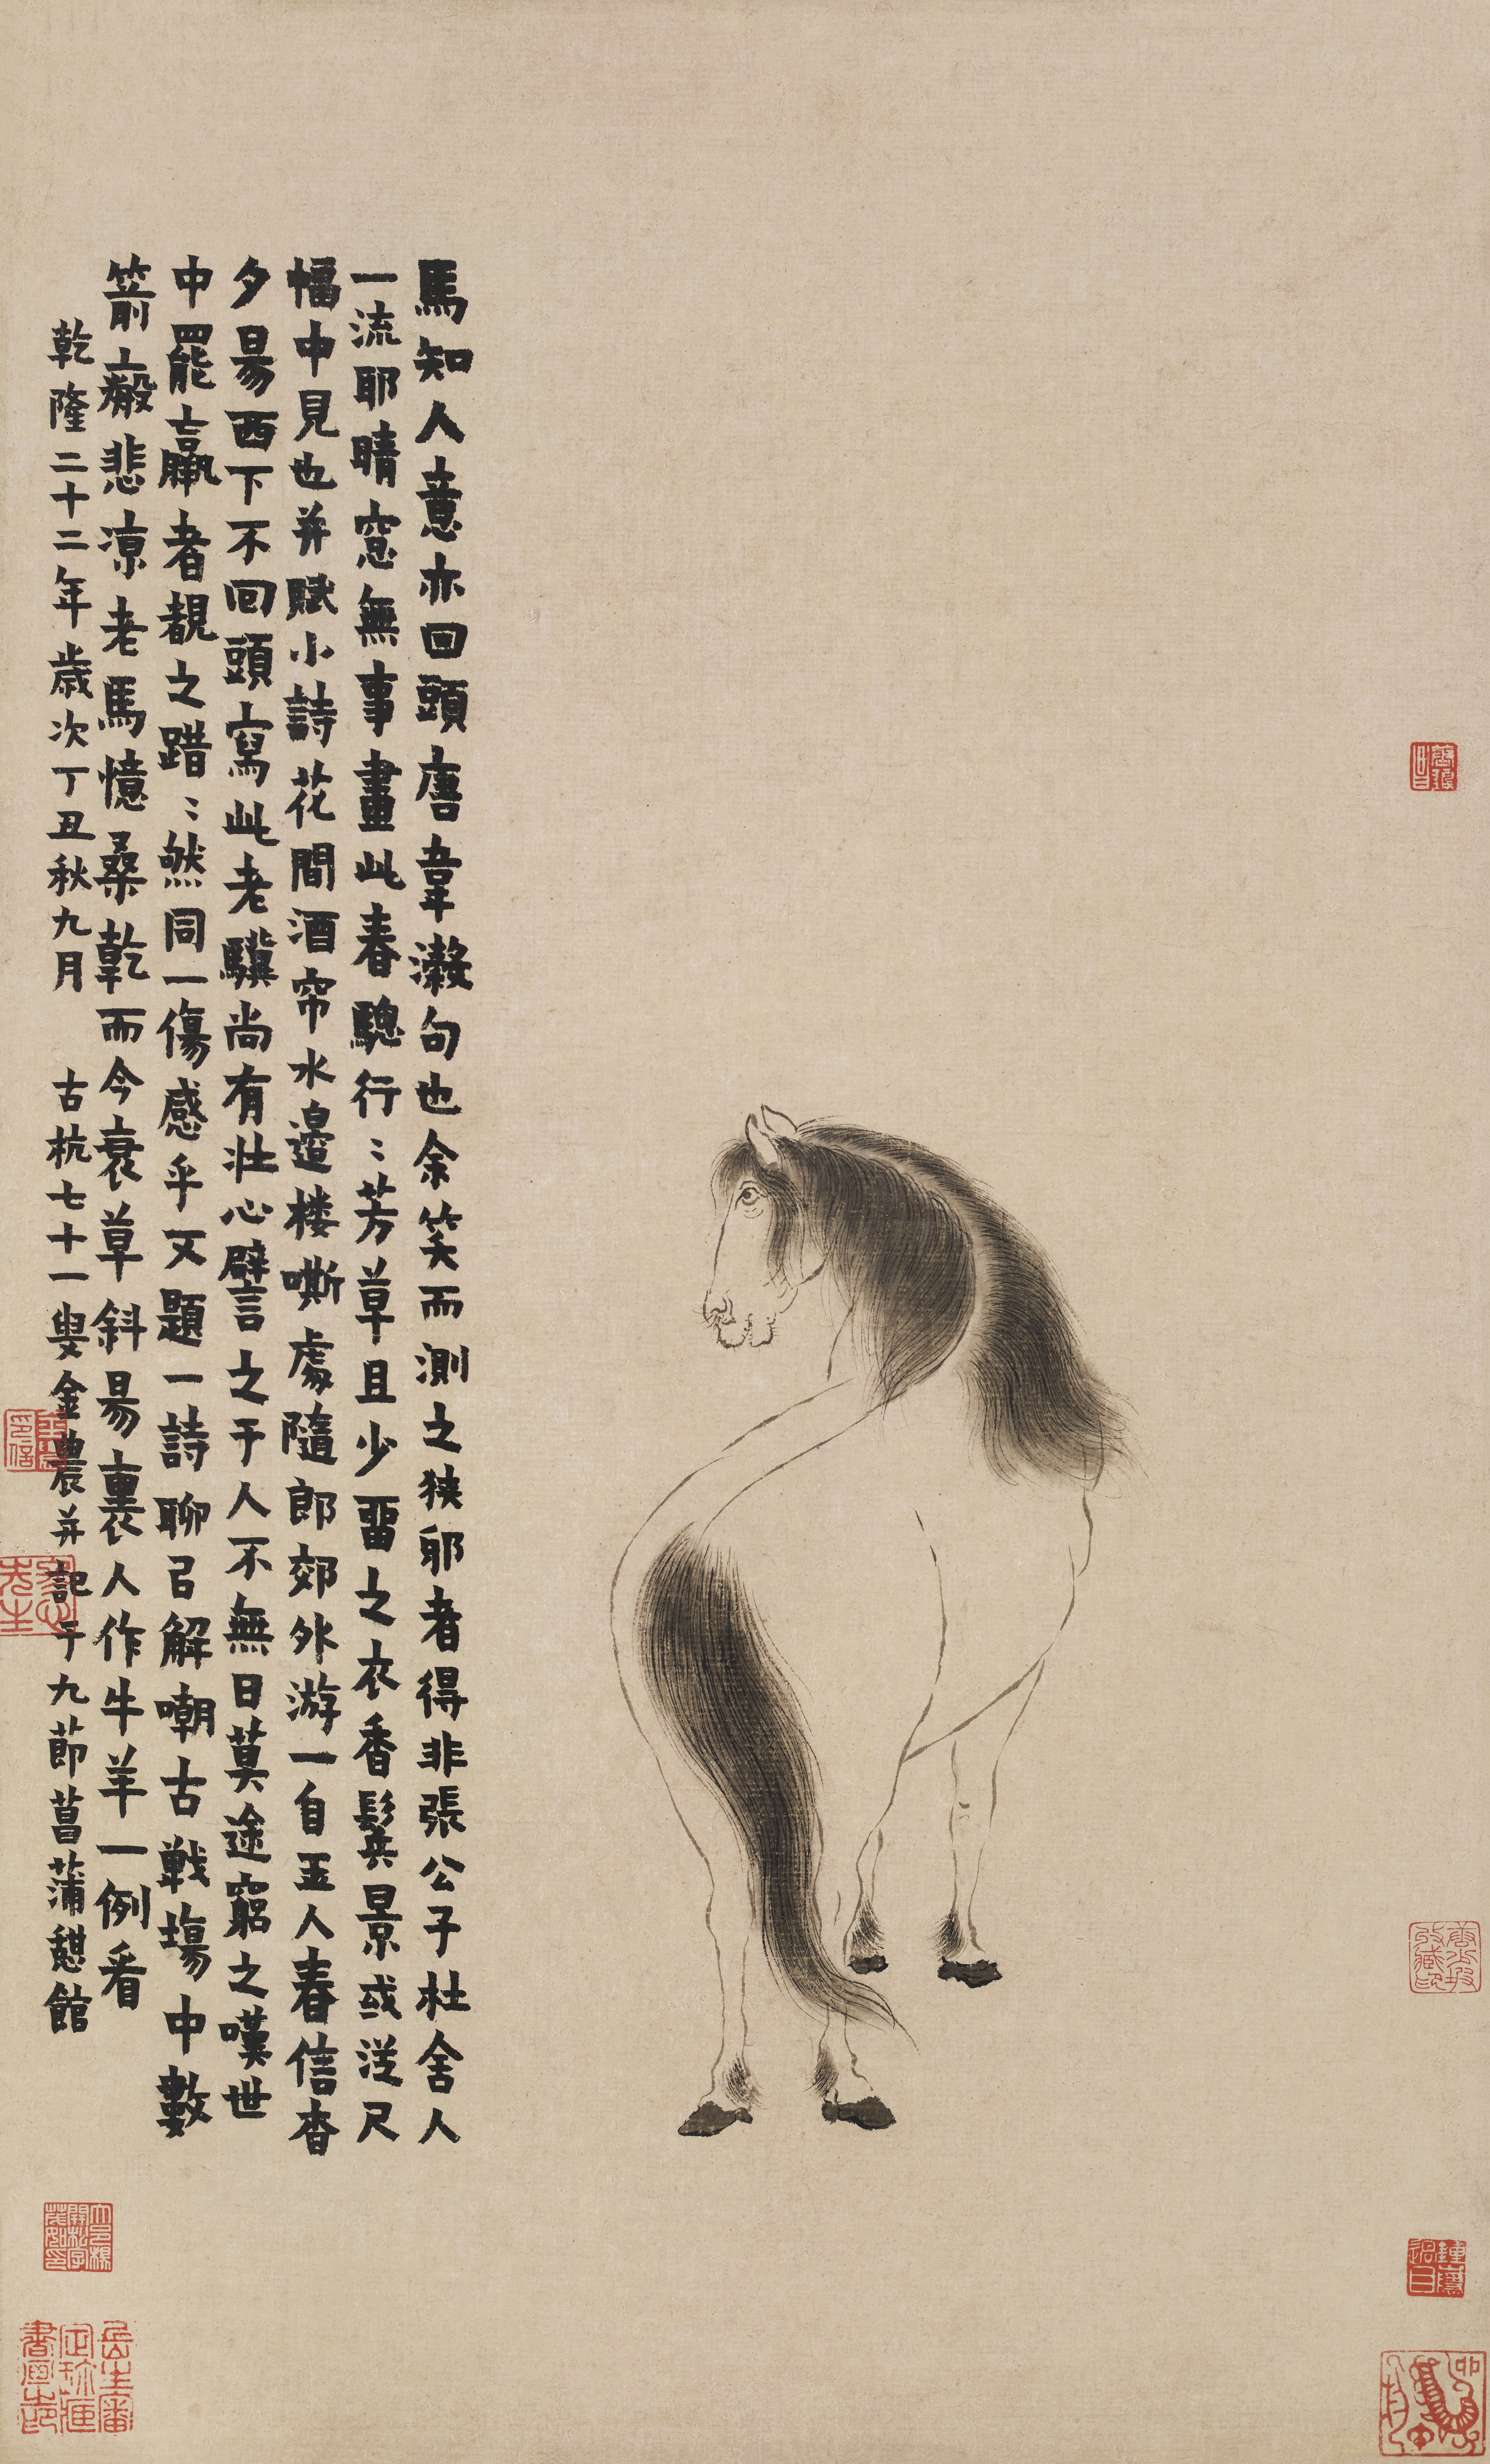 馬知人意亦回頭唐韋澥句也余笑而測之狹邪者得非張公子杜舍人
一流耶晴窓無事畫此春驄行〻芳草且少畱之衣香鬂景或從尺
幅中見也并賦小詩花間酒帘水邉楼嘶處隨郎郊外游一自玉人春信杳
夕昜西下不回頭寫此老驥尚有壮心譬之于人不無日莫途窮之嘆世
中罷羸者覩之踖〻然同一傷感乎又題一詩聊㠯解嘲古戰塲中數
箭瘢悲凉老馬憶桑乾而今衰草斜昜裏人作牛羊一例看
乾隆二十二年歲次丁丑秋九月 古杭七十一叟金農并記于九莭菖蒲憇館